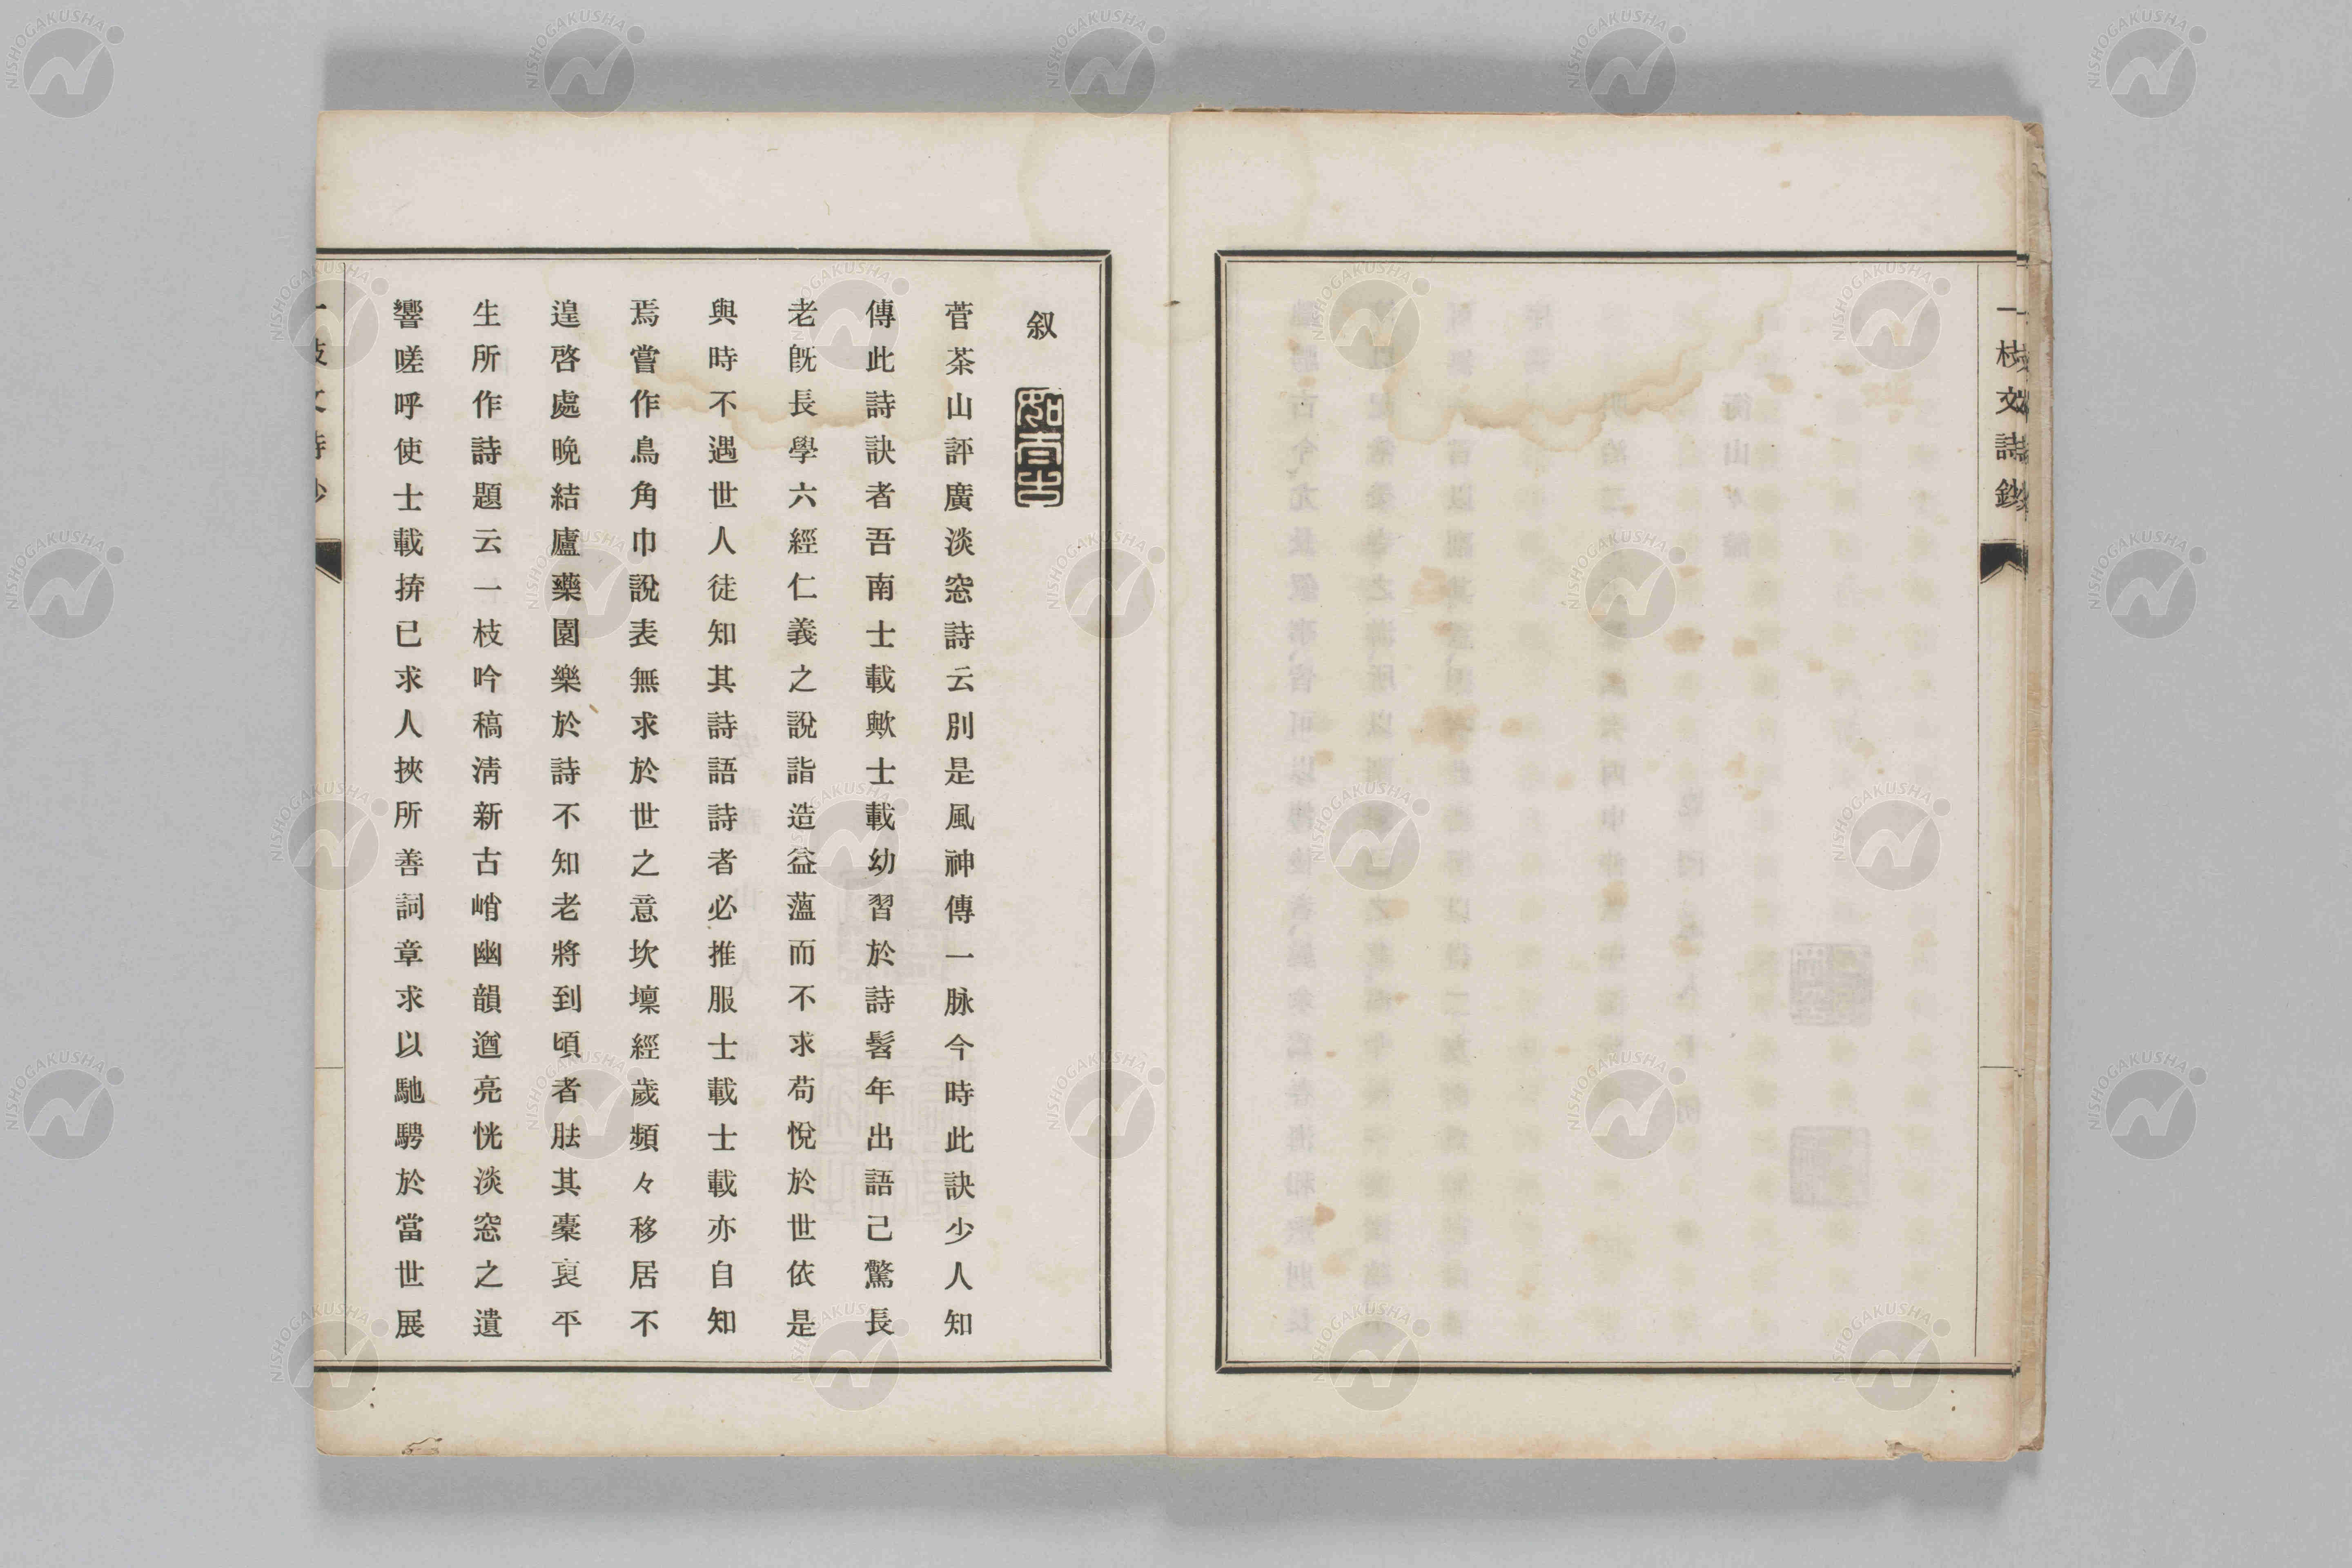 一枝文詩鈔
叙
菅茶山評廣淡窓詩云別是風神傳一脉今時此訣少人知
傳此詩訣者吾南士載歟士載幼習於詩髫年出語己驚長
老旣長學六經仁義之說詣造益薀而不求苟悅於世依是
與時不遇世人徒知其詩語詩者必推服士載士載亦自知
焉嘗作烏角巾說表無求於世之意坎壈經歲頻々移居不
遑啓處晩結廬藥園樂於詩不知老將到頃者胠其槀裒平
生所作詩題云一枝吟稿淸新古峭幽韻遒亮恍淡窓之遺
響嗟呼使士載拚已求人挾所善詞章求以馳騁於當世展
NISHOGAKUSHA